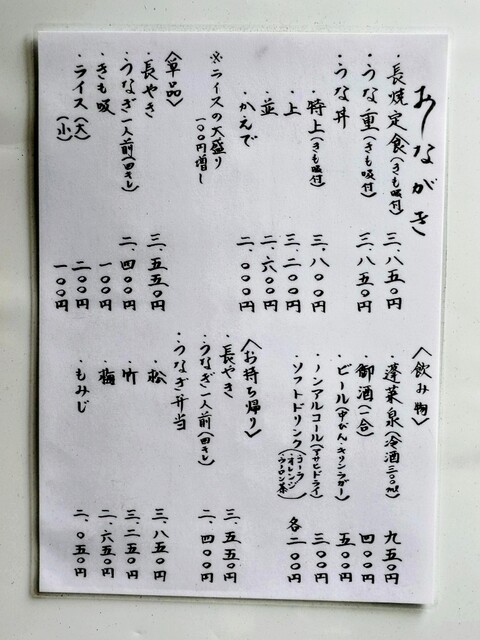 おしながき
・長焼定食(きも吸付) 三、八五〇円
・うな重(きも吸付) 三、八五〇円
・うな丼
・特上(きも吸付) 三、八〇〇円
・上 三、二〇〇円
・並 二、六〇〇円
・かえで 二、〇〇〇円
※ライスの大盛り
一〇〇円増し
〈単品〉
・長やき 三、五五〇円
・うなぎ一人前(四キレ) 二、四〇〇円
・きも吸 一〇〇円
・ライス(大) 二〇〇円
(小) 一〇〇円
〈飲み物〉
・蓬莱泉(冷酒三〇〇ml) 九五〇円
・御酒(一合) 四〇〇円
・ビール(中びん・キリンラガー) 五〇〇円
・ノンアルコール(アサヒドライ) 三〇〇円
・ソフトドリンク(・コーラ ・オレンジ ・ウーロン茶) 各二〇〇円
〈お持ち帰り〉
・長やき 三、五五〇円
・うなぎ一人前(四キレ) 二、四〇〇円
・うなぎ弁当
・松 三、八五〇円
・竹 三、二五〇円
・梅 二、六五〇円
・もみじ 二、〇五〇円